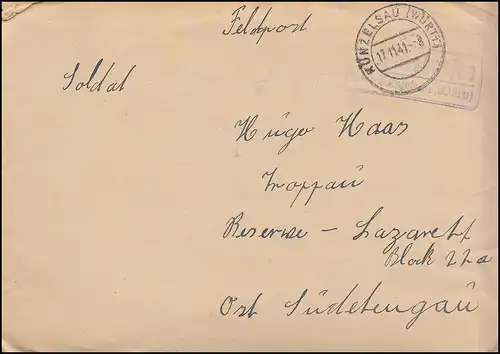 Feldpost
KÜNZELSAU (WÜRTT)
17.11.41.-8
Soldat
Hugo Haas
Troppau
Reserve - Lazarett
Block 22a
Ost Südetengaú